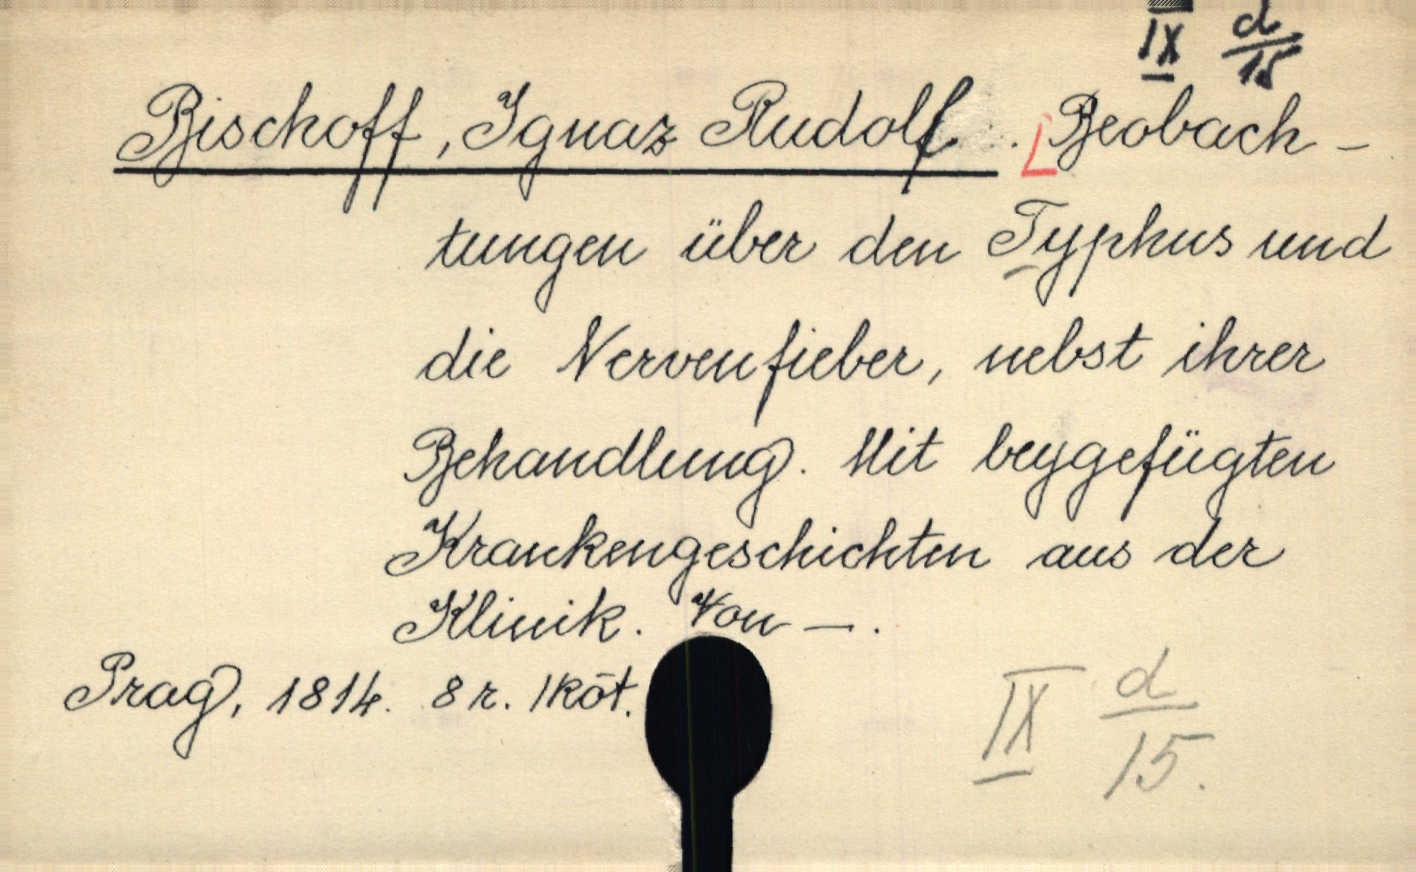 IX d/15
Bischoff, Ignaz Rudolf. Beobach-
tungen über den Typhus und
die Nervenfieber, nebst ihrer
Behandlung. Mit beygefügten
Krankengeschichten aus der
Klinik. Von —.
Prag, 1814. 8r. 1 köt.
IX d/15.